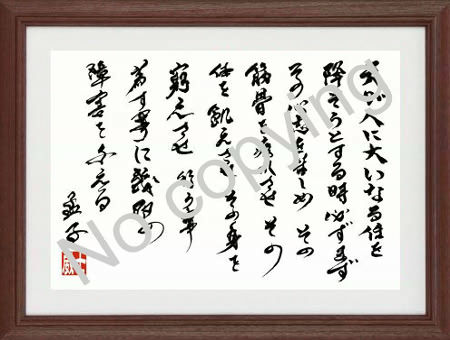 天が人に大いなる任を
降そうとする時必ずまず
その心志を苦しめ その
筋骨を疲れさせ その
体を飢えさせ その身を
窮乏させ
為す事に幾多の
障害を与える
孟子
No copying